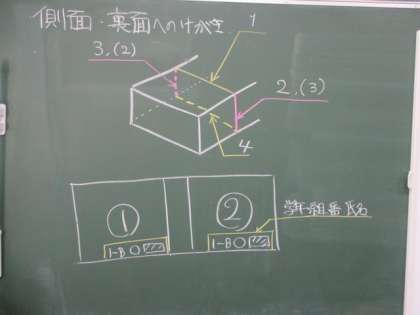 側面・裏面へのけがき
1
3,(2)
2,(3)
4
① ②
学年・組・番 氏名
1-B〇 1-B〇